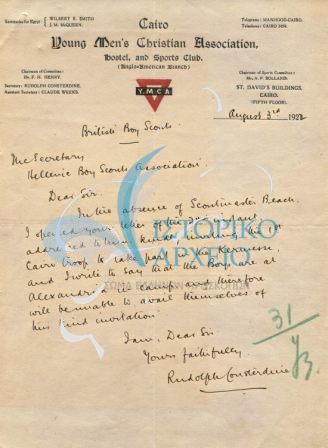 Secretaries for Egypt:
WILBERT B. SMITH
J. M. McQUEEN.
Cairo
Young Men's Christian Association,
Hostel, and Sports Club.
(Anglo-American Branch)
Telegrams: MANHOOD-CAIRO.
Telephone: CAIRO
Chairman of Committee:
Mr. F. H. HENRY.
Secretary: RUDOLPH CONSTERDINE.
Assistant Secretary: CLAUDE WEEKS.
Y.M.C.A
Chairman of Sports Committee:
Mr. A. P. HOLLAND.
ST. DAVID'S BUILDINGS,
CAIRO.
(FIFTH FLOOR).
August 3rd 192
British Boy Scouts.
The Secretary
Hellenic Boy Scouts Association.
Dear Sir.
In the absence of Scoutmaster Beach.
I opened your letter of the instant
addressed to him kindly inviting the 1st
Cairo troop to take part in the Kermesse,
and I write to say that the Boys are at
Alexandria in camp and therefore
will be unable to avail themselves of
his kind invitation
I am, Dear Sir
Yours faithfully.
Rudolph Consterdine
31
ΙΣΤΟΡΙΚΟ
ΑΡΧΕΙΟ
ΣΩΜΑ ΕΛΛΗΝΩΝ ΠΡΟΣΚΟΠΩΝ